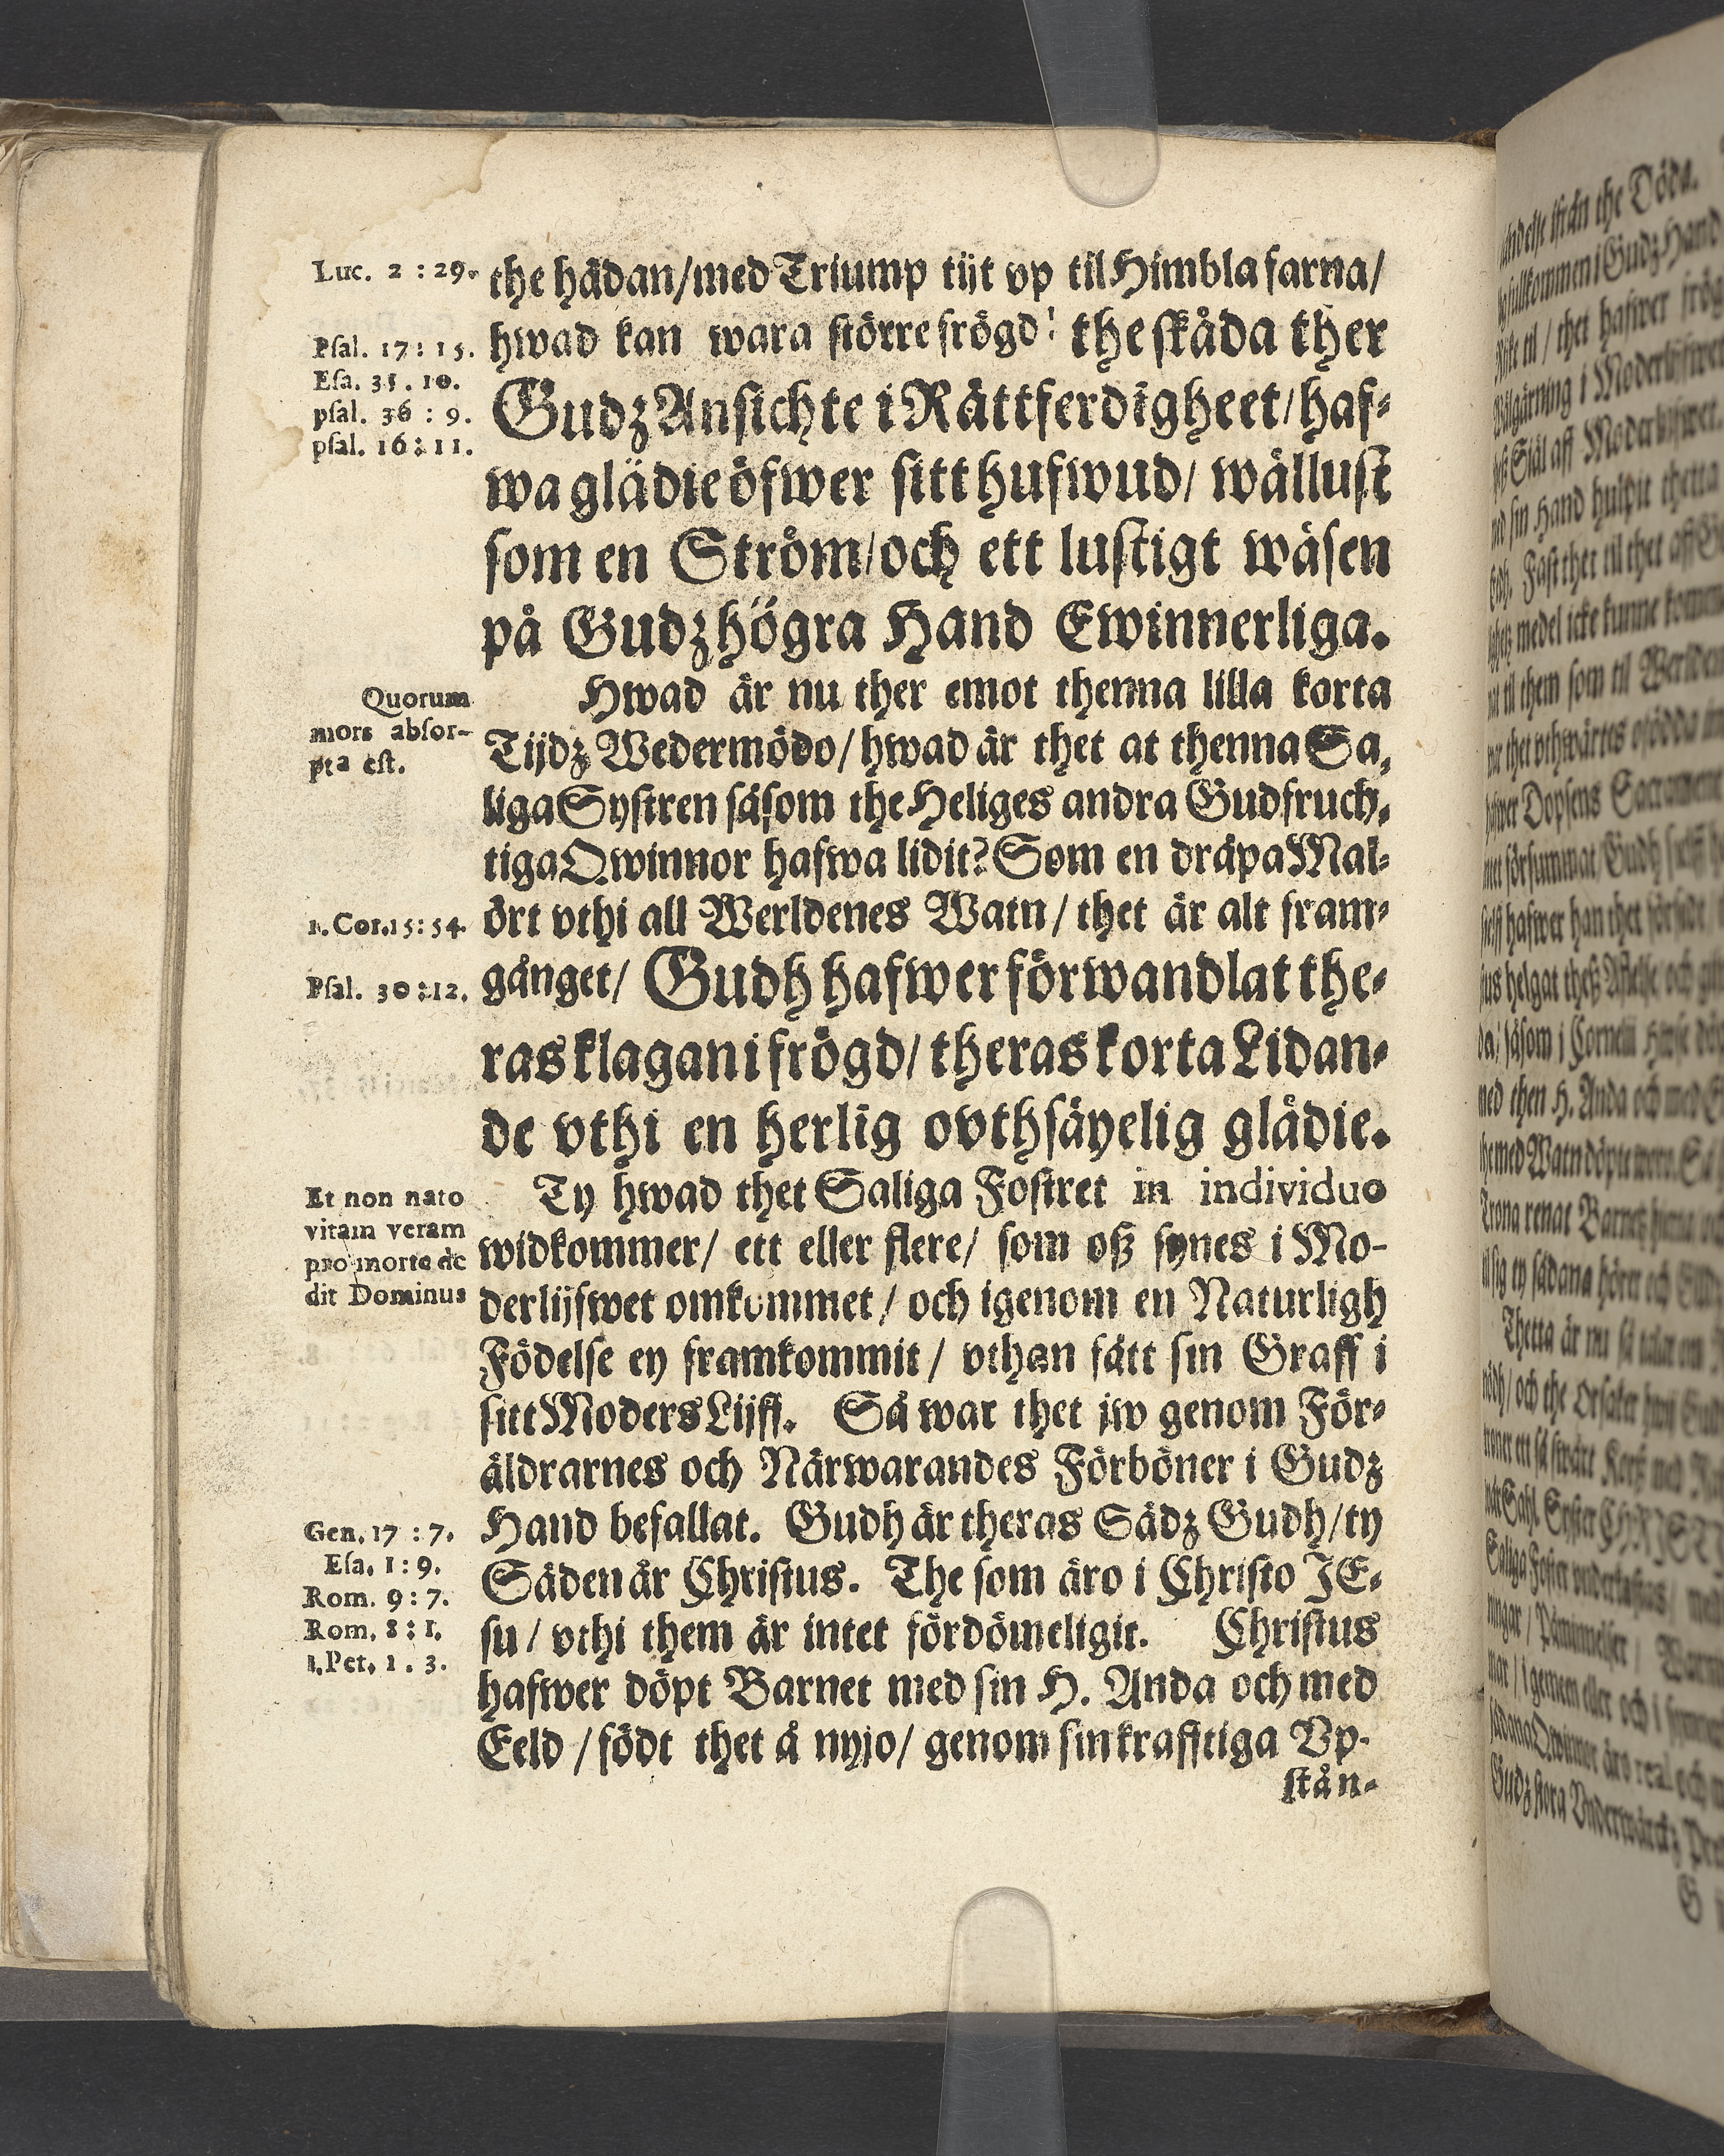 Luc. 2 : 29.
the hädan/med Triump tijt vp til Himbla farna/
Psal. 17: 15.
hwad kan wara större frögd! the skåda ther
Esa. 35. 10.
psal. 36 : 9.
Gudz Ansichte i Rättferdigheet/haf-
psal. 16: 11.
wa glädie öfwer sitt hufwud/ wällust
som en Ström/och ett lustigt wäsen
på Gudz högra Hand Ewinnerliga.
Quorum
mors absor-
pta est.
Hwad är nu ther emot thenna lilla korta
Tijdz Wedermödo/ hwad är thet at thenna Sa,
liga Systren såsom the Heliges andra Gudfruch,
tiga Qwinnor hafwa lidit? Som en dråpa Mal-
1. Cor. 15: 54.
ört vthi all Werldenes Watn/ thet är alt fram-
Psal. 30: 12.
gånget/ Gudh hafwer förwandlat the-
ras klagan i frögd/ theras korta Lidan-
de vthi en herlig ovthsäyelig glädie.
Et non nato
vitam veram
pro morte de
dit Dominus
Ty hwad thet Saliga Fostret in individuo
widkommer/ ett eller flere/ som oß synes i Mo-
derlijfwet omkommet/ och igenom en Naturligh
Födelse ey framkommit/ vthan fått sin Graff i
sitt Moders Lijff. Så war thet jw genom För-
äldrarnes och Närwarandes Förböner i Gudz
Gen. 17 : 7.
Hand befallat. Gudh är theras Sädz Gudh/ty
Esa. 1: 9.
Säden är Christus. The som äro i Christo JE-
Rom. 9: 7.
Rom. 8: 1.
su/ vthi them är intet fördömeligit. Christus
1. Pet. 1. 3.
hafwer döpt Barnet med sin H. Anda och med
Eeld/födt thet å nyjo/ genom sin krafftiga Vp-
stån-